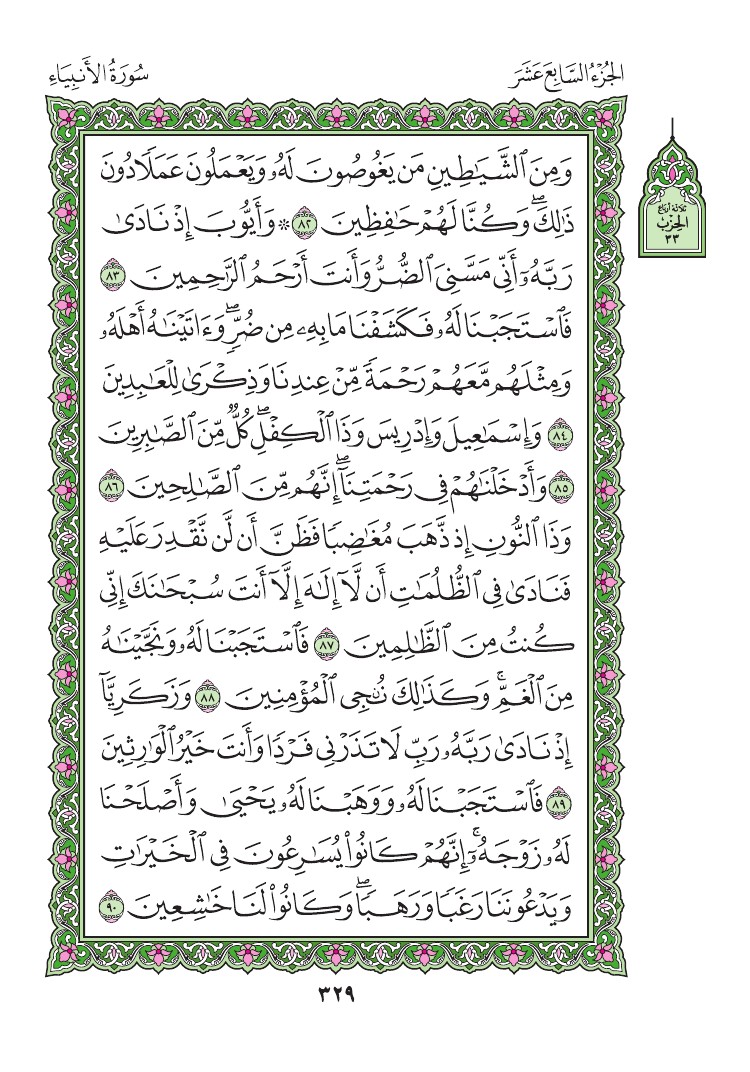 الجُزْءُ السَّابِعَ عَشَرَ
سُورَةُ الأَنبِيَاءِ
وَمِنَ ٱلشَّيَٰطِينِ مَن يَغُوصُونَ لَهُۥ وَيَعْمَلُونَ عَمَلًا دُونَ
ذَٰلِكَۖ وَكُنَّا لَهُمْ حَٰفِظِينَ ٨٢ ۞ وَأَيُّوبَ إِذْ نَادَىٰ
رَبَّهُۥٓ أَنِّي مَسَّنِيَ ٱلضُّرُّ وَأَنتَ أَرْحَمُ ٱلرَّٰحِمِينَ ٨٣
فَٱسْتَجَبْنَا لَهُۥ فَكَشَفْنَا مَا بِهِۦ مِن ضُرّٖۖ وَءَاتَيْنَٰهُ أَهْلَهُۥ
وَمِثْلَهُم مَّعَهُمْ رَحْمَةٗ مِّنْ عِندِنَا وَذِكْرَىٰ لِلْعَٰبِدِينَ
٨٤ وَإِسْمَٰعِيلَ وَإِدْرِيسَ وَذَا ٱلْكِفْلِۖ كُلّٞ مِّنَ ٱلصَّٰبِرِينَ
٨٥ وَأَدْخَلْنَٰهُمْ فِي رَحْمَتِنَآۖ إِنَّهُم مِّنَ ٱلصَّٰلِحِينَ ٨٦
وَذَا ٱلنُّونِ إِذ ذَّهَبَ مُغَٰضِبٗا فَظَنَّ أَن لَّن نَّقْدِرَ عَلَيْهِ
فَنَادَىٰ فِي ٱلظُّلُمَٰتِ أَن لَّآ إِلَٰهَ إِلَّآ أَنتَ سُبْحَٰنَكَ إِنِّي
كُنتُ مِنَ ٱلظَّٰلِمِينَ ٨٧ فَٱسْتَجَبْنَا لَهُۥ وَنَجَّيْنَٰهُ
مِنَ ٱلْغَمِّۚ وَكَذَٰلِكَ نُۨجِي ٱلْمُؤْمِنِينَ ٨٨ وَزَكَرِيَّآ
إِذْ نَادَىٰ رَبَّهُۥ رَبِّ لَا تَذَرْنِي فَرْدٗا وَأَنتَ خَيْرُ ٱلْوَٰرِثِينَ
٨٩ فَٱسْتَجَبْنَا لَهُۥ وَوَهَبْنَا لَهُۥ يَحْيَىٰ وَأَصْلَحْنَا
لَهُۥ زَوْجَهُۥٓۚ إِنَّهُمْ كَانُوا۟ يُسَٰرِعُونَ فِي ٱلْخَيْرَٰتِ
وَيَدْعُونَنَا رَغَبٗا وَرَهَبٗاۖ وَكَانُوا۟ لَنَا خَٰشِعِينَ ٩٠
ثلاثة أرباع
الحزب
٣٣
٣٢٩